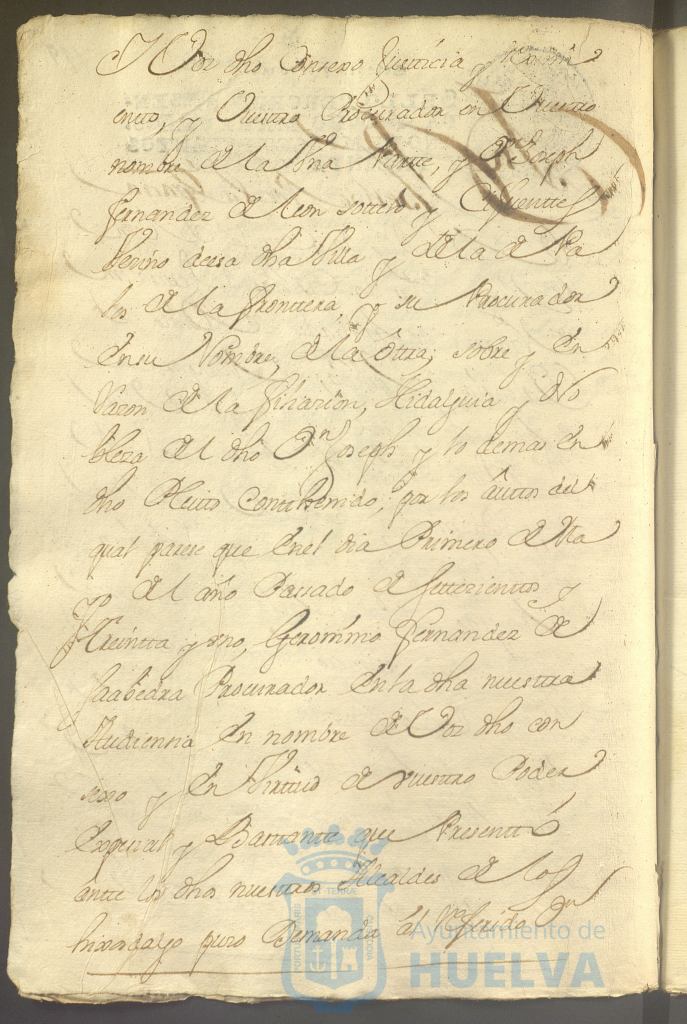 Vos dho Consexo Justicia y Regim
ento, y Vuestro Procurador en Vuestro
nombre de la Una Parte, y Dn Joseph
Fernandez de leon sottelo y Cifuenttes
Vecino de esa dha Villa y de la de Pa
los de la fronttera, y su Procurador
en su Nombre, de la ôttra, sobre, y en
Razon de la filiazion, Hidalguia y No
bleza del dho Dn Joseph y lo demas en
dho Pleito Conthenido, por los âuttos del
qual pareze que en el dia Primero de Ma
yo del año Passado de settezienttos y
treintta y uno, Geronimo Fernandez de
saabedra Procurador en la dha nuestra
Audiencia en nombre de Vos dho con
sexo y en Virttud de vuestro Poder
Especial y Bastante que Presenttó
ante los dhos nuestros Alcaldes de los
hixosdalgo puso Demanda al Referido Dn
Ayuntamiento de
HUELVA